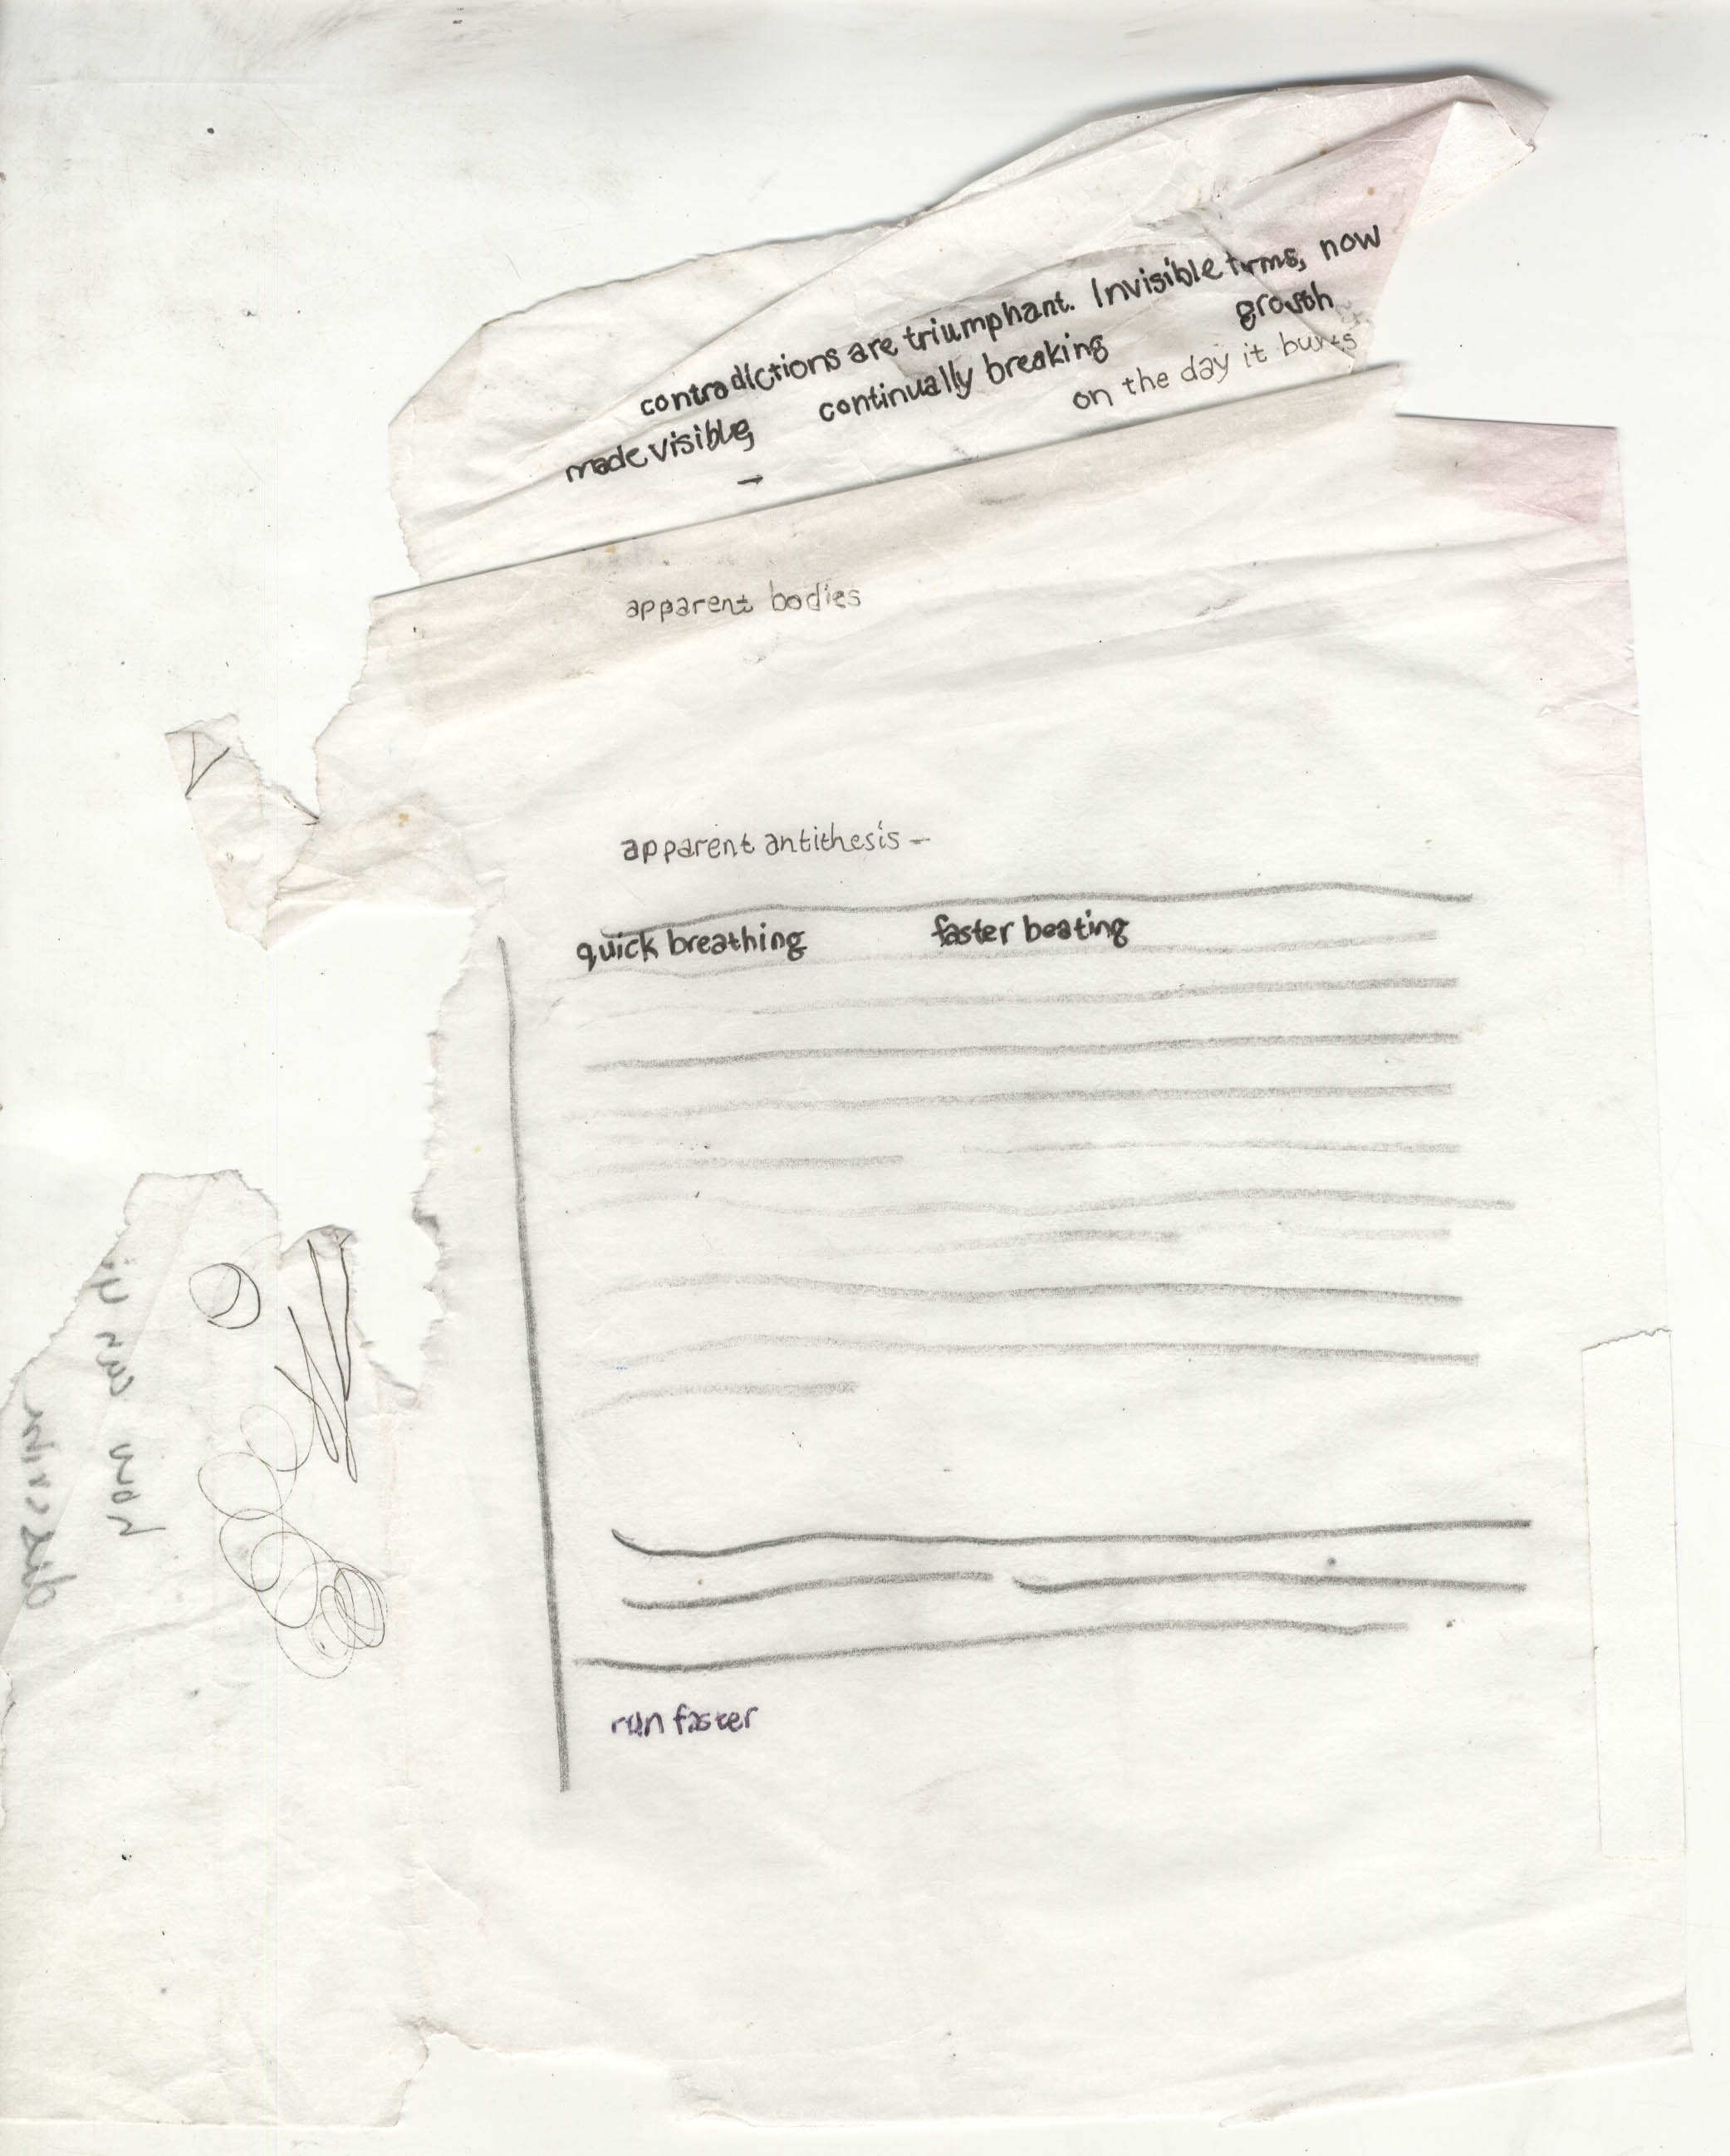 contradictions are triumphant. Invisible now
made visible, continually breaking growth
on the day it
apparent bodies
apparent antithesis –
quick breathing faster beating
run faster